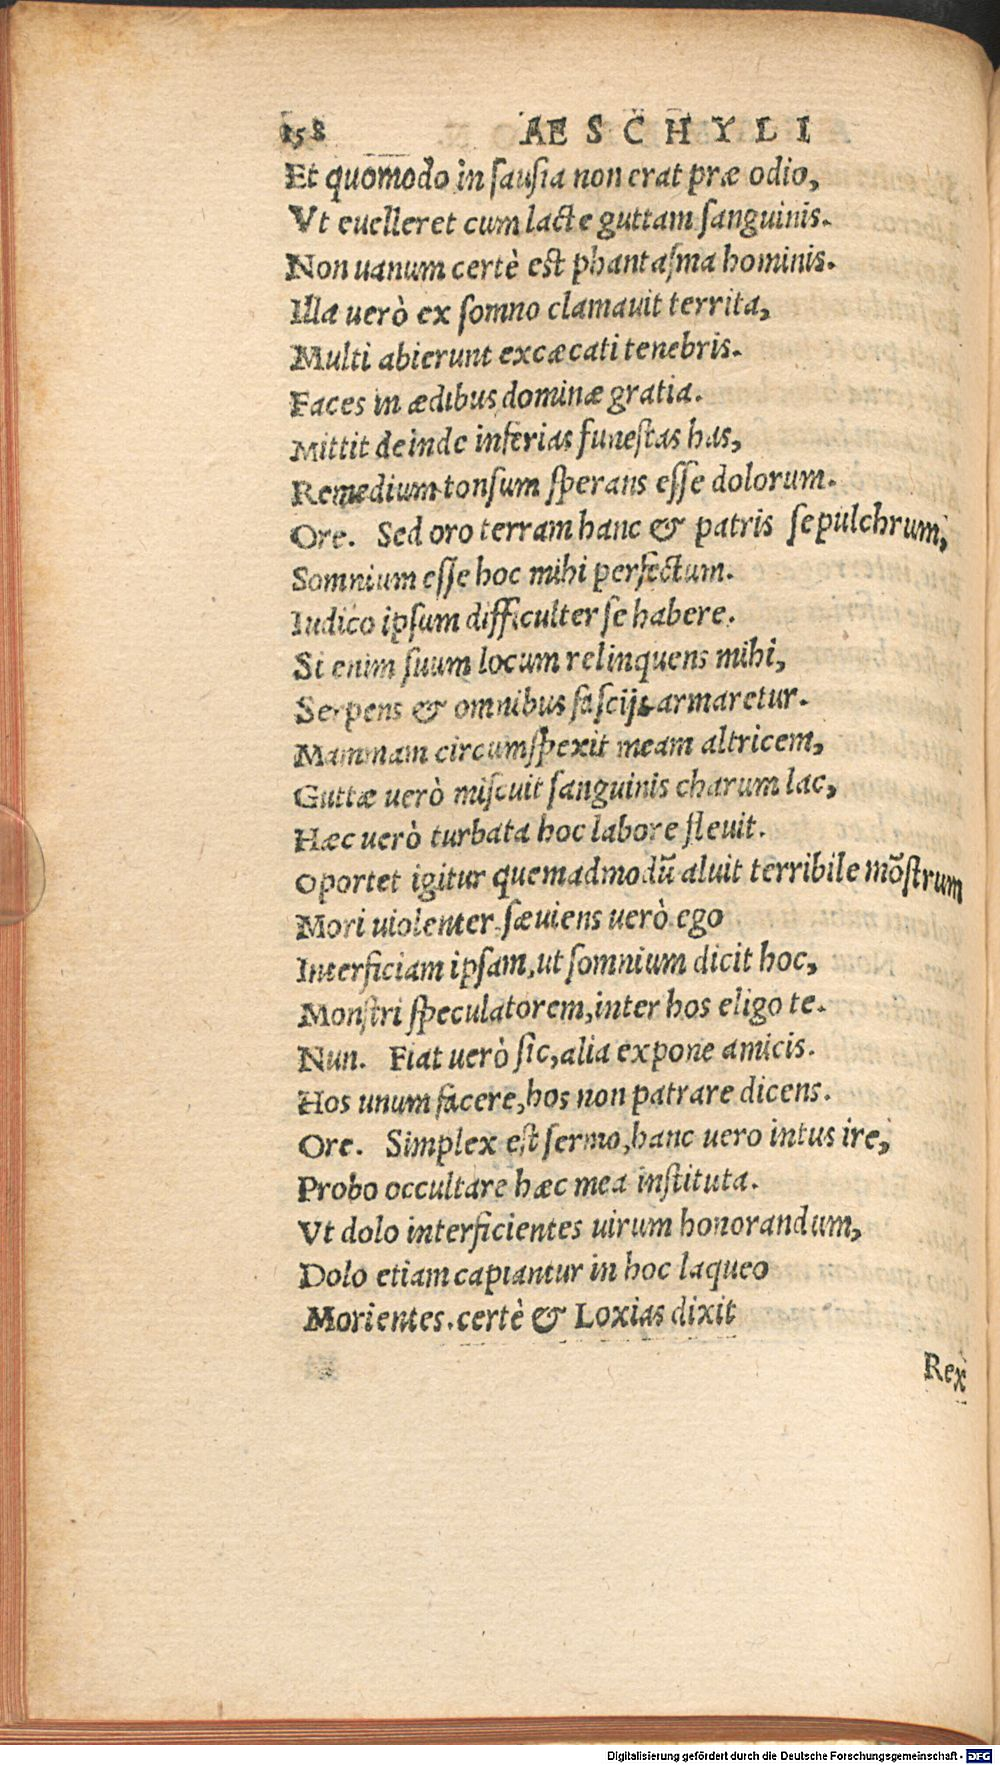 158 AESCHYLI
Et quomodo in sausia non erat præ odio,
Vt euelleret cum lacte guttam sanguinis.
Non uanum certè est phantasma hominis.
Illa uerò ex somno clamauit territa,
Multi abierunt excæcati tenebris.
Faces in ædibus dominæ gratia.
Mittit deinde inferias funestas has,
Remedium tonsum sperans esse dolorum.
Ore. Sed oro terram hanc & patris sepulchrum,
Somnium esse hoc mihi perfectum.
Iudico ipsum difficulter se habere.
Si enim suum locum relinquens mihi,
Serpens & omnibus fascijs armaretur.
Mammam circumspexit meam altricem,
Guttæ uerò miscuit sanguinis charum lac,
Hæc uerò turbata hoc labore fleuit.
Oportet igitur quemadmodũ aluit terribile mõstrum
Mori uiolenter. sæuiens uerò ego
Interficiam ipsam, ut somnium dicit hoc,
Monstri speculatorem, inter hos eligo te.
Nun. Fiat uerò sic, alia expone amicis.
Hos unum facere, hos non patrare dicens.
Ore. Simplex est sermo, hanc uero intus ire,
Probo occultare hæc mea instituta.
Vt dolo interficientes uirum honorandum,
Dolo etiam capiantur in hoc laqueo
Morientes. certè & Loxias dixit
Rex
Digitalisierung gefördert durch die Deutsche Forschungsgemeinschaft - DFG